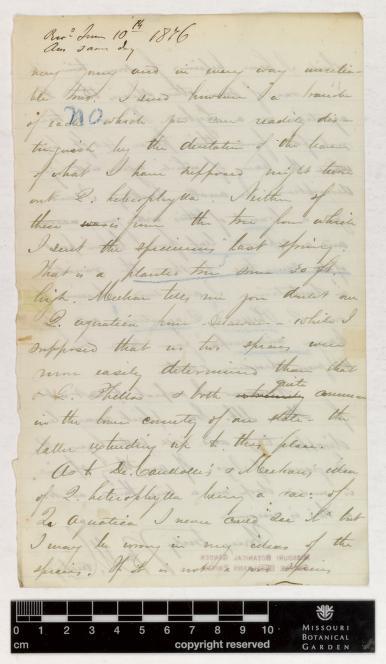 Rec'd June 10th 1876
Ans same day
very young and in every way
I send however a bundle
of each which you can readily dis-
NO
tinguish by the dentation of the leaves
of what I have supposed might turn
out Q. heterophylla. Neither of
these was from the tree from which
I sent the specimens last spring.
That is a planted tree some 30 ft.
high. Meehan tells me you doubt our
Q. aquatica from Delaware - while I
supposed that no two species were
more easily determined than that
& Q. Phellos & both quite common
in the lower county of our state - the
latter extending up to this place.
As to De Candolle's & Meehan's idea
of Q. heterophylla being a var. of
Q. aquatica I never could see it but
I may be wrong in my ideas of the
species. If it is not a species
MISSOURI BOTANICAL GARDEN
0 1 2 3 4 5 6 7 8 9 10
cm
copyright reserved
MISSOURI
BOTANICAL
GARDEN